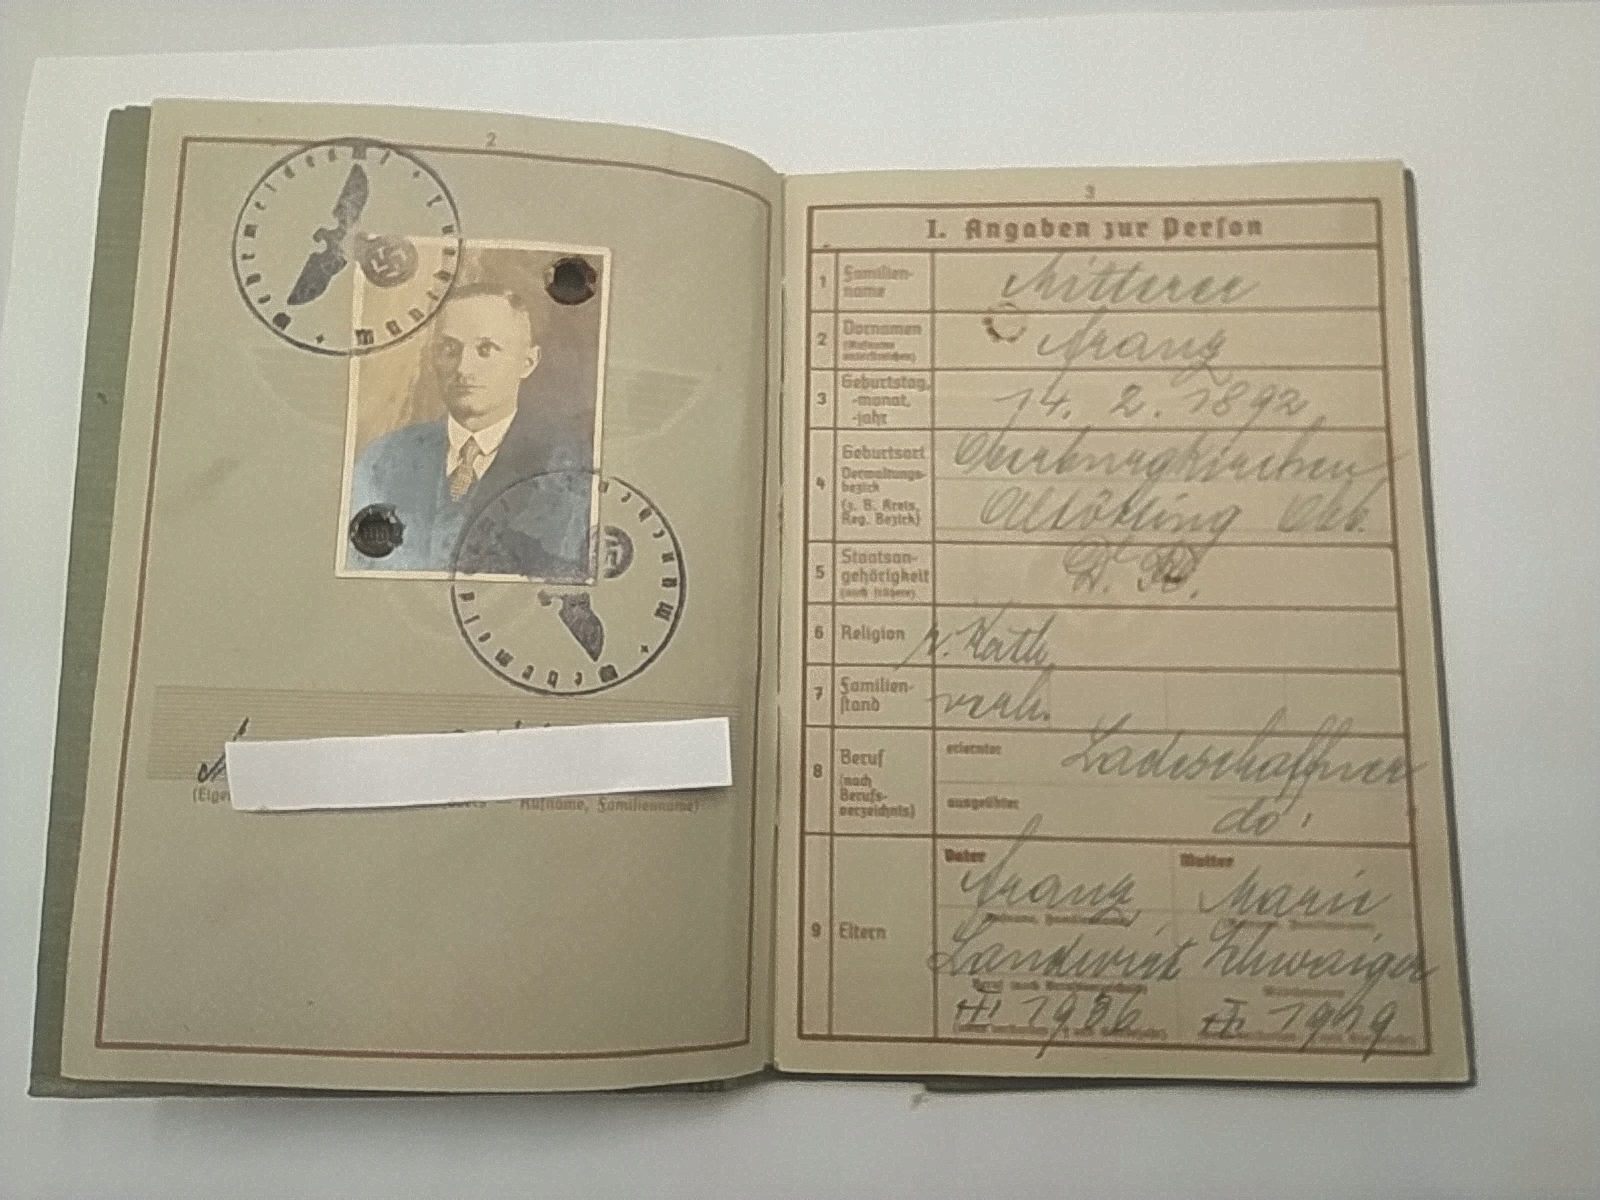 2
Wehrmeldeamt
(Eige
Rufname, Familienname)
3
I. Angaben zur Person
1 Familien-
name
Mitterer
2 Vornamen
(Rufname
unterstreichen)
Franz
3 Geburtstag,
-monat,
-jahr
14. 2. 1892
4 Geburtsort
Verwaltungs-
bezirk
(z. B. Kreis,
Reg. Bezirk)
Oberburgkirchen
Altötting Obb.
5 Staatsan-
gehörigkeit
(auch frühere)
D. R.
6 Religion
r. Kath.
7 Familien-
stand
verh.
8 Beruf
(nach
Berufs-
verzeichnis)
erlernter Ladeschaffner
ausgeübter do.
9 Eltern
Vater Mutter
Franz Marie
Landwirt Schwaiger
1936 1919